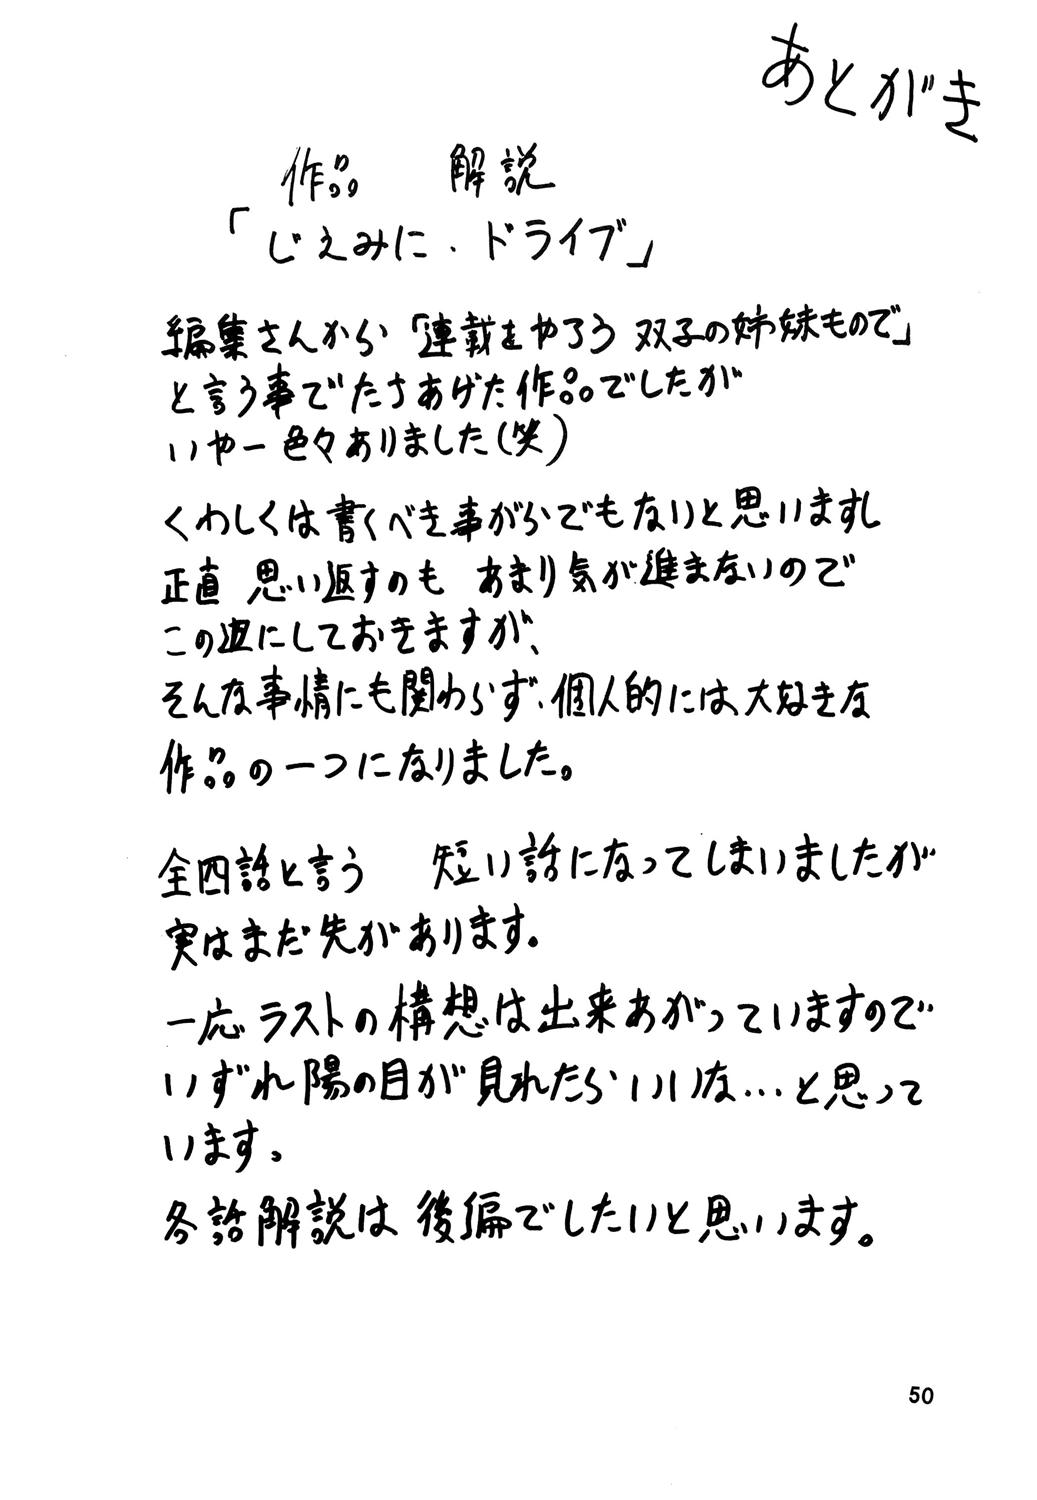 あとがき
作品 解説
「じえみに・ドライブ」
編集さんから「連載をやろう 双子の姉妹もので」
と言う事でたちあげた作品でしたが
いやー色々ありました(笑)
くわしくは書くべき事がらでもないと思いますし
正直 思い返すのも あまり気が進まないので
この辺にしておきますが、
そんな事情にも関わらず、個人的には大好きな
作品の一つになりました。
全四話と言う 短い話になってしまいましたが
実はまだ先があります。
一応ラストの構想は出来あがっていますので
いずれ陽の目が見れたらいいな…と思って
います。
各話解説は後編でしたいと思います。
50